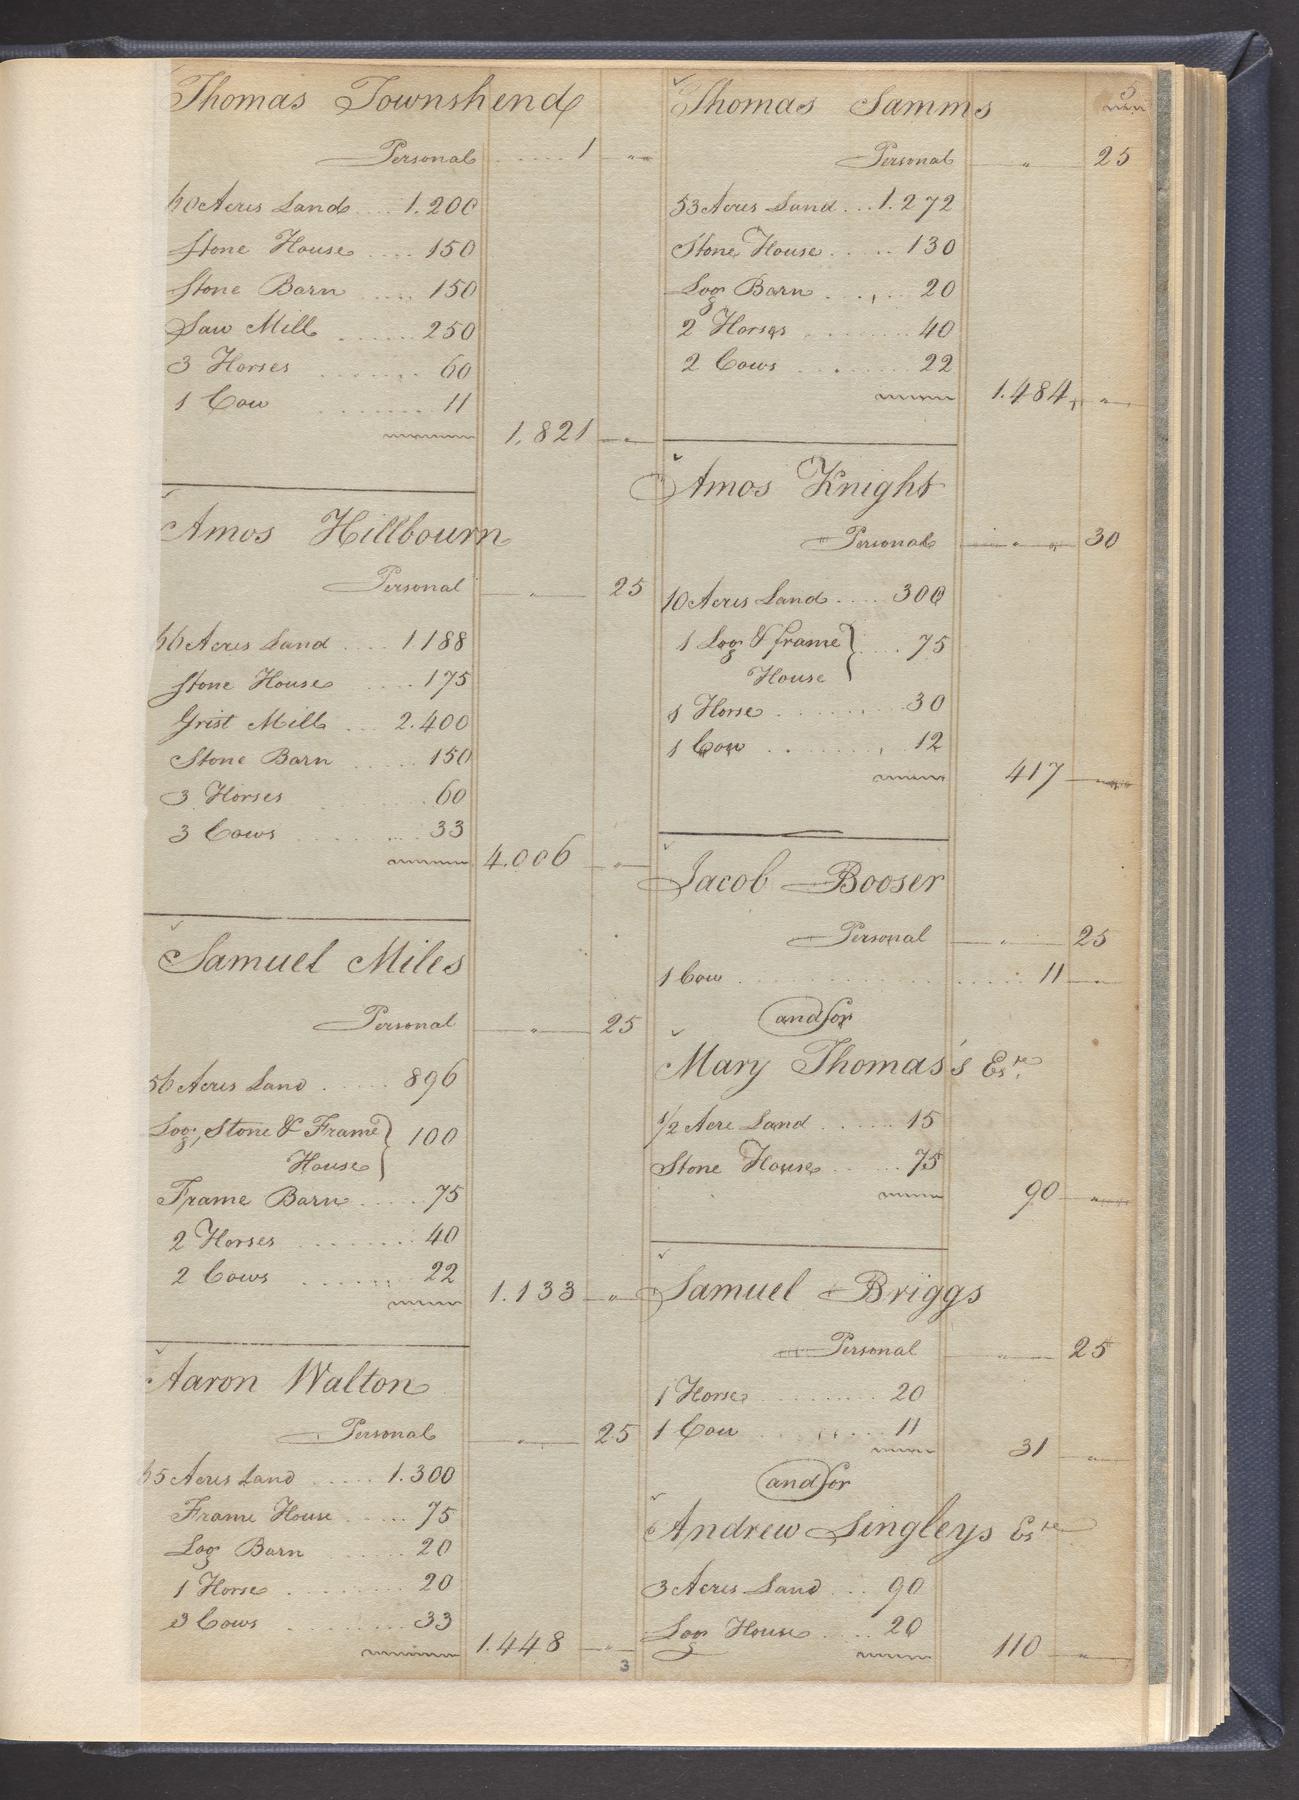 Thomas Townshend
Personal ..... 1 — " —
60 Acres Land .... 1.200
Stone House .... 150
Stone Barn .... 150
Saw Mill ...... 250
3 Horses ....... 60
1 Cow ....... 11
1.821 — " —
Amos Hillbourn
Personal — " — 25
66 Acres Land .... 1188
Stone House .... 175
Grist Mill ... 2.400
Stone Barn ..... 150
3 Horses ..... 60
3 Cows ....... 33
4.006 — " —
Samuel Miles
Personal — " — 25
56 Acres Land ..... 896
Log, Stone & Frame } 100
House
Frame Barn ..... 75
2 Horses ....... 40
2 Cows ...... 22
1.133 — " —
Aaron Walton
Personal — " — 25
65 Acres Land ..... 1.300
Frame House ..... 75
Log Barn ..... 20
1 Horse ........ 20
3 Cows ........ 33
1.448 — " —
3
5
Thomas Samms
Personal — " — 25
53 Acres Land ... 1.272
Stone House ..... 130
Log Barn ..... 20
2 Horses ....... 40
2 Cows ...... 22
1.484 — " —
Amos Knight
Personal — " — 30
10 Acres Land .... 300
1 Log & frame } .... 75
House
1 Horse ....... 30
1 Cow ....... 12
417 — " —
Jacob Booser
Personal — " — 25
1 Cow ............... 11 — " —
and for
Mary Thomas's Es.te
1/2 Acre Land ..... 15
Stone House ..... 75
90 — " —
Samuel Briggs
Personal — " — 25
1 Horse ........ 20
1 Cow ........ 11
31 — " —
and for
Andrew Singleys Es.te
3 Acres Land ... 90
Log House .... 20
110 — " —